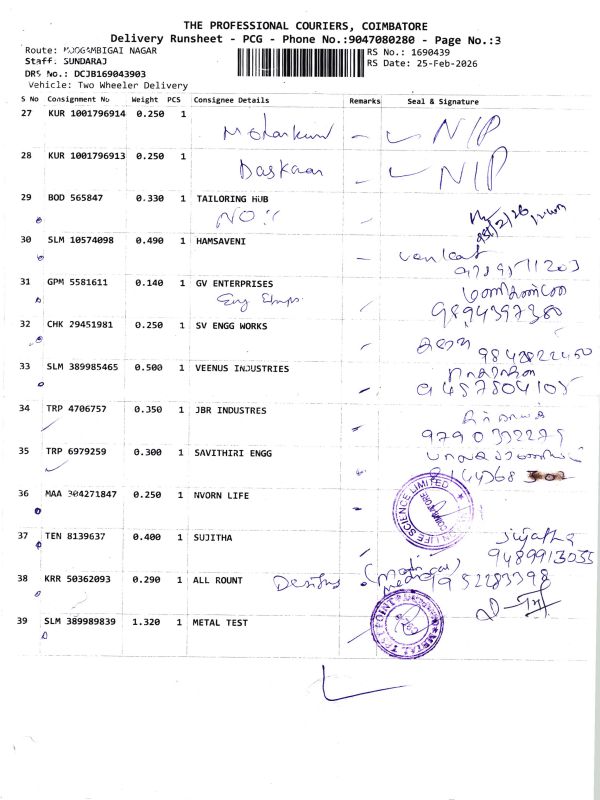 THE PROFESSIONAL COURIERS, COIMBATORE
Delivery Runsheet - PCG - Phone No.:9047080280 - Page No.:3
Route: MOOGAMBIGAI NAGAR
RS No.: 1690439
Staff: SUNDARAJ
RS Date: 25-Feb-2026
DRS No.: DCJB169043903
Vehicle: Two Wheeler Delivery
S No Consignment No Weight PCS Consignee Details Remarks Seal & Signature
27 KUR 1001796914 0.250 1
N/P
28 KUR 1001796913 0.250 1
Baskaran N/P
29 BOD 565847 0.330 1 TAILORING HUB
NO!!
30 SLM 10574098 0.490 1 HAMSAVENI
venkat
31 GPM 5581611 0.140 1 GV ENTERPRISES
மணிகண்டன்
9894397380
32 CHK 29451981 0.250 1 SV ENGG WORKS
9842822450
33 SLM 389985465 0.500 1 VEENUS INDUSTRIES
34 TRP 4706757 0.350 1 JBR INDUSTRES
35 TRP 6979259 0.300 1 SAVITHIRI ENGG
36 MAA 304271847 0.250 1 NVORN LIFE
LIFE SCIENCE LIMITED
COIMBATORE
37 TEN 8139637 0.400 1 SUJITHA
Sujatha
9489913055
38 KRR 50362093 0.290 1 ALL ROUNT Designs
9952283398
39 SLM 389989839 1.320 1 METAL TEST